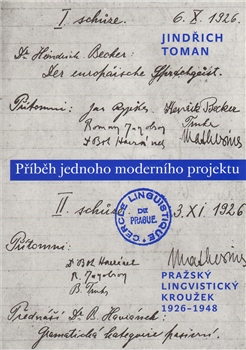 I. schůze. 6. X. 1926.
JINDŘICH
TOMAN
Dr. Heinrich Becker:
Der europäische Sprachgeist.
Přítomni: Jan Rypka, Henrik Becker
Trnka
Roman Jakobson Mathesius
Dr Boh Havránek
Příběh jednoho moderního projektu
II. schůze 3. XI. 1926
CERCLE LINGUISTIQUE
DE
PRAGUE
Přítomni: Mathesius
Dr Boh Havránek
R. Jakobson
B. Trnka
PRAŽSKÝ
LINGVISTICKÝ
KROUŽEK
1926–1948
Přednáší Dr. B. Havránek:
Gramatická kategorie pasivní.